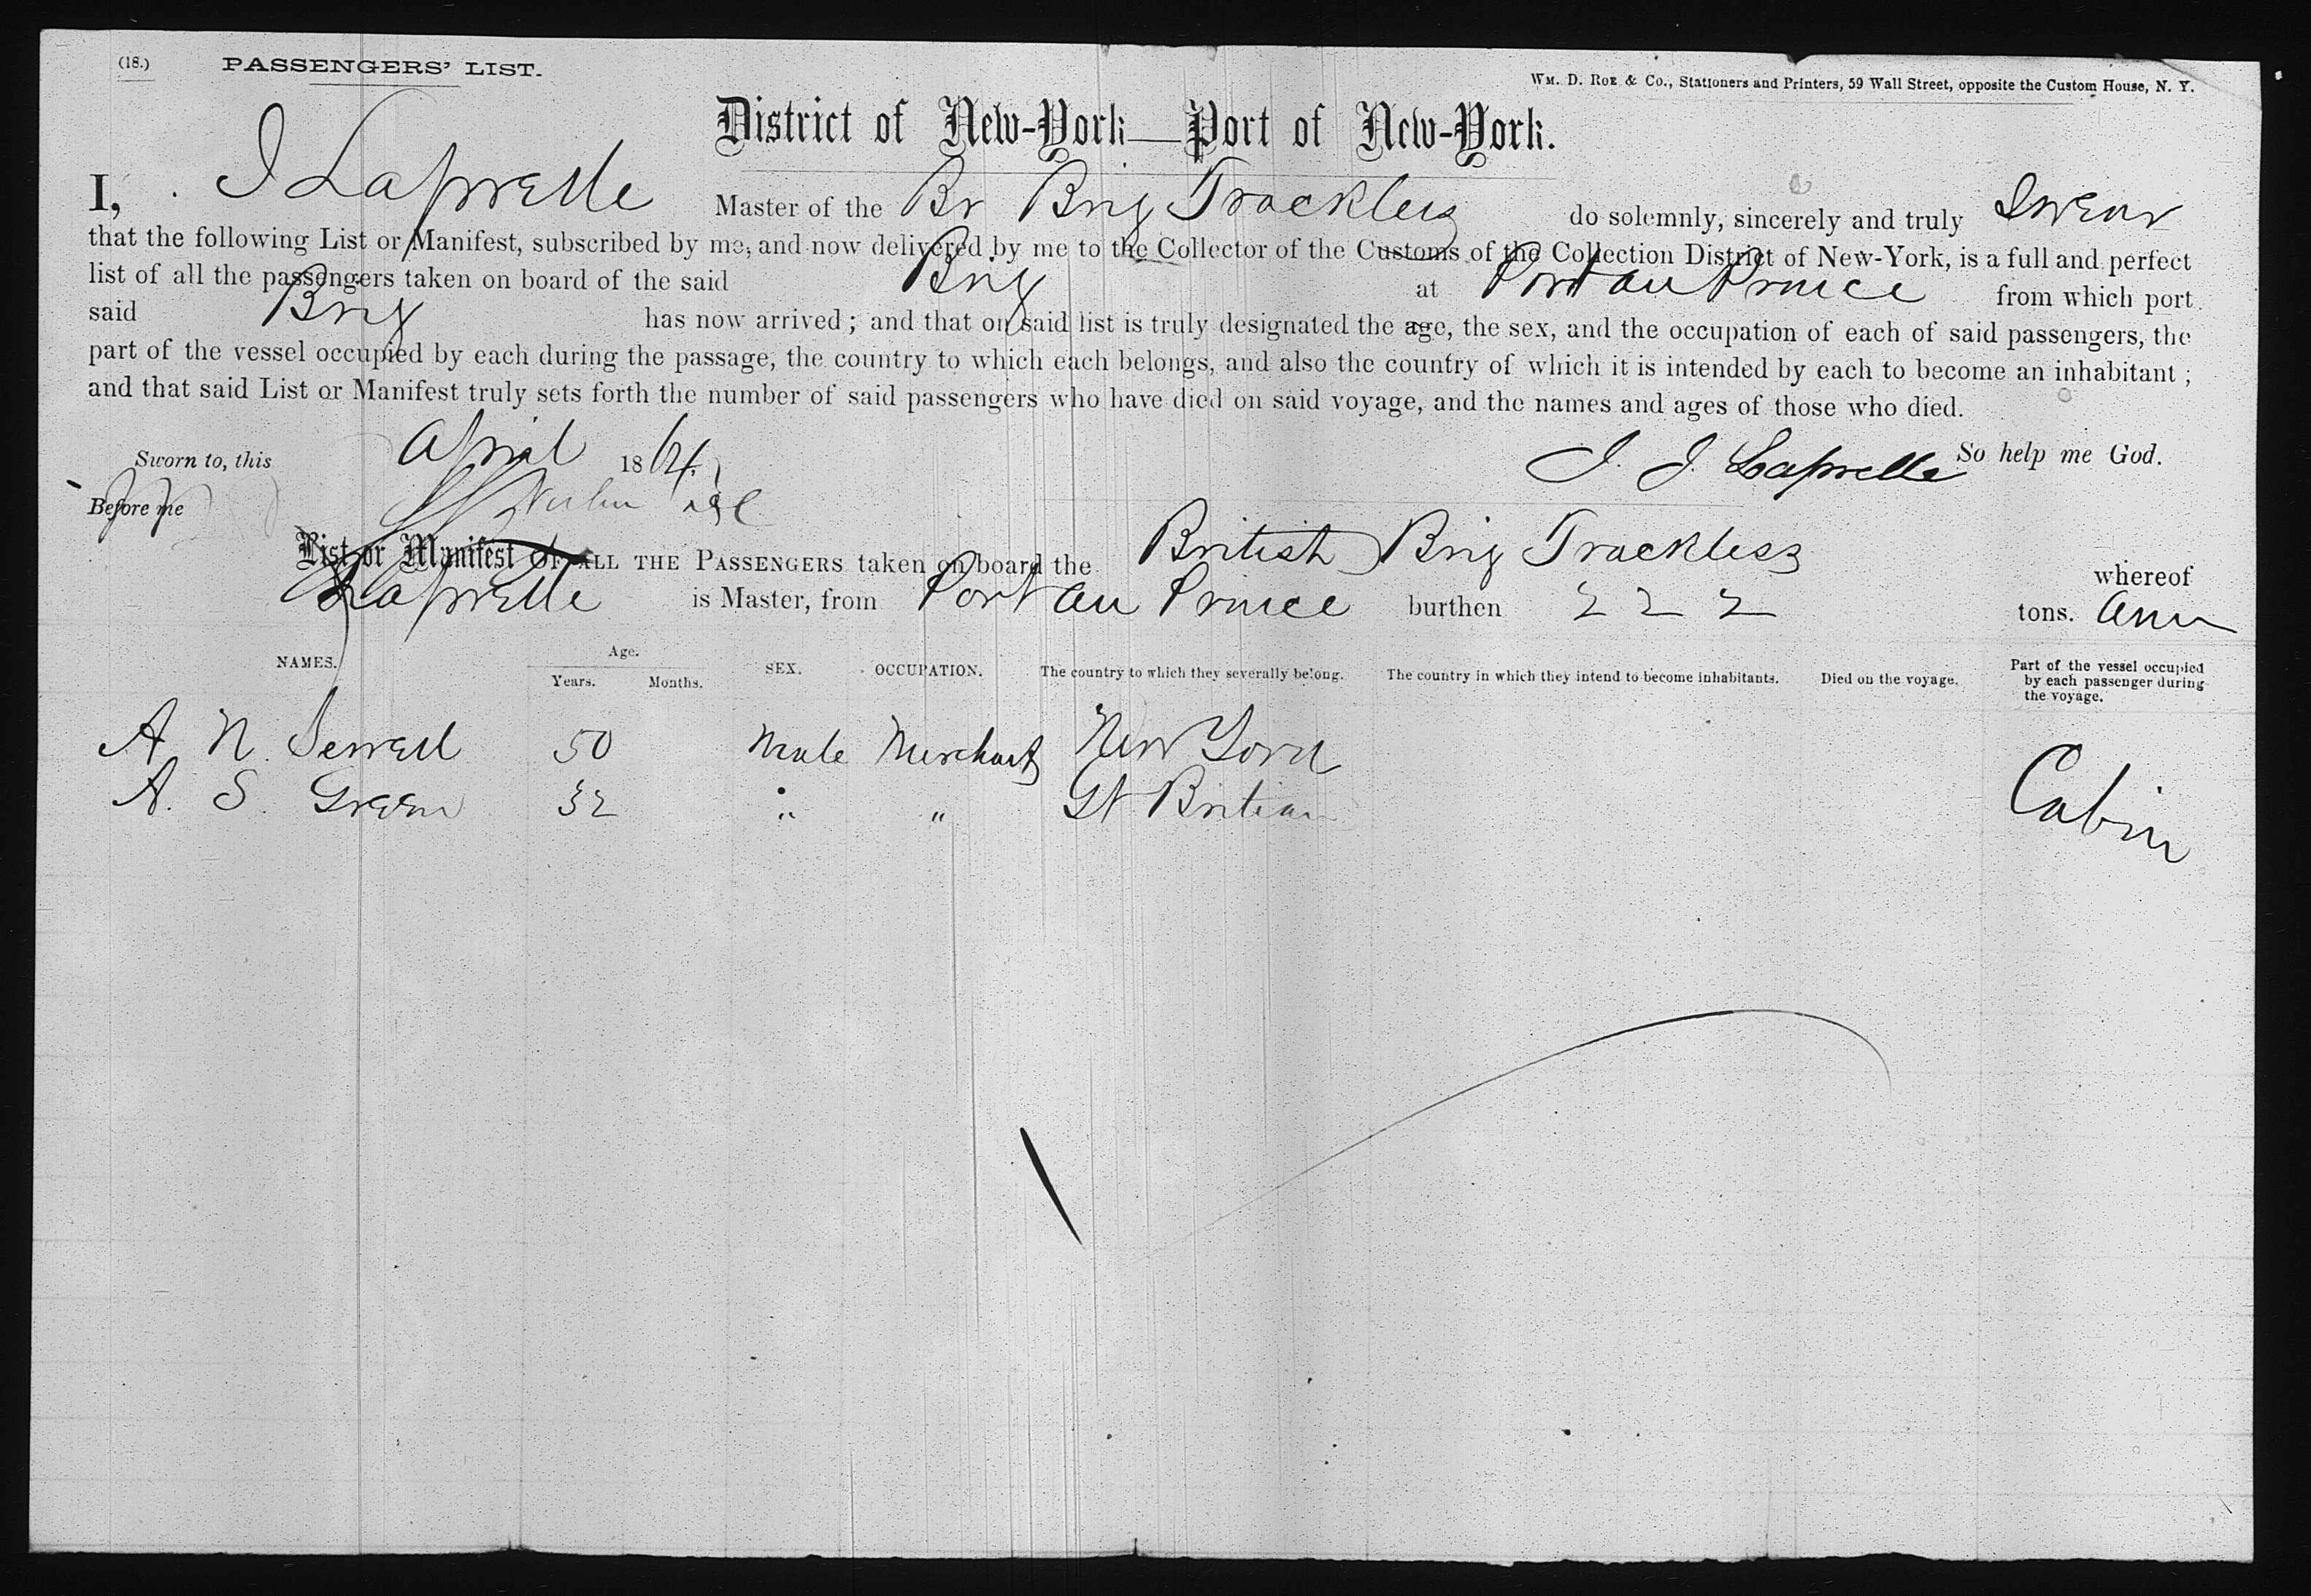 (18.) PASSENGERS' LIST.
WM. D. ROE & Co., Stationers and Printers, 59 Wall Street, opposite the Custom House, N. Y.
District of New-York—Port of New-York.
I, J Laprelle Master of the Br Brig Trackless do solemnly, sincerely and truly swear
that the following List or Manifest, subscribed by me, and now delivered by me to the Collector of the Customs of the Collection District of New-York, is a full and perfect
list of all the passengers taken on board of the said Brig at Port au Prince from which port
said Brig has now arrived; and that on said list is truly designated the age, the sex, and the occupation of each of said passengers, the
part of the vessel occupied by each during the passage, the country to which each belongs, and also the country of which it is intended by each to become an inhabitant;
and that said List or Manifest truly sets forth the number of said passengers who have died on said voyage, and the names and ages of those who died.
Sworn to, this April 1864. So help me God.
J. J. Laprelle
Before me
List or Manifest OF ALL THE PASSENGERS taken on board the British Brig Trackless whereof
Laprelle is Master, from Port au Prince burthen 222 tons.
NAMES. Age. Years. Months. SEX. OCCUPATION. The country to which they severally belong. The country in which they intend to become inhabitants. Died on the voyage. Part of the vessel occupied by each passenger during the voyage.
A. N. Sewell 50 Male Merchant New York Cabin
A. S. Green 32 " " Gt Britian